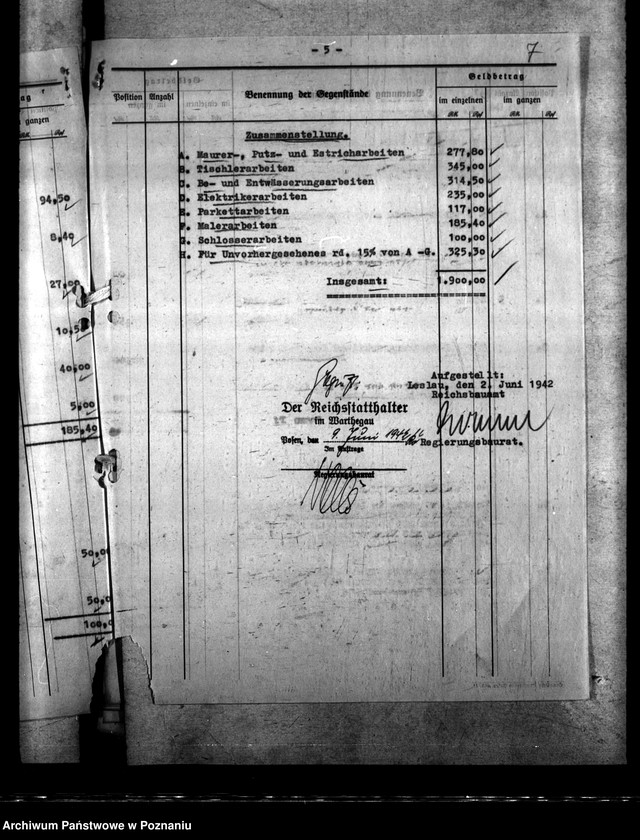 - 5 -
7
Geldbetrag
Position Anzahl Benennung der Gegenstände im einzelnen im ganzen
ganzen
Zusammenstellung.
A. Maurer-, Putz- und Estricharbeiten 277,80
B. Tischlerarbeiten 345,00
C. Be- und Entwässerungsarbeiten 314,50
D. Elektrikerarbeiten 235,00
E. Parkettarbeiten 117,00
F. Malerarbeiten 185,40
G. Schlosserarbeiten 100,00
H. Für Unvorhergesehenes rd. 15% von A -G. 325,30
Insgesamt: 1.900,00
94,50
8,40
27,00
10,5
40,00
5,00
185,40
50,00
50,0
100,0
Aufgestellt:
Leslau, den 2. Juni 1942
Reichsbauamt
Regierungsbaurat.
Der Reichsstatthalter
im Warthegau
Posen, den 9. Juni 1942
Im Auftrage
Regierungsbaurat
Archiwum Państwowe w Poznaniu